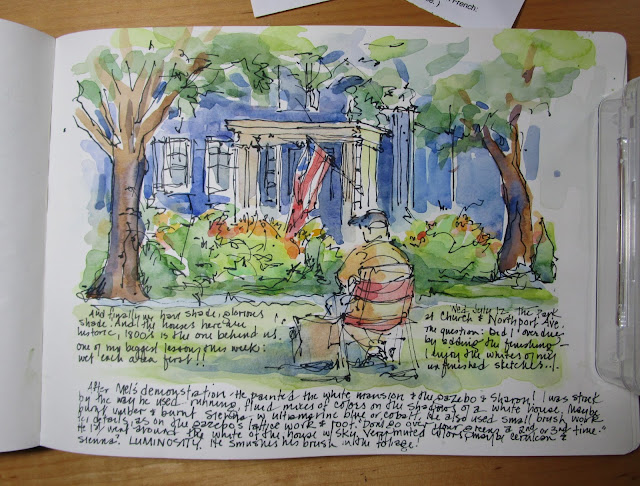 French:
e.)
and finally we have shade, glorious
shade. And the houses here are
historic, 1800s is the one behind us.
one of my biggest lessons this week:
wet each area first!!
Wed. July 12. The Park
at Church & Northport Ave.
my question: Did I overdue
by adding the finishing–
I enjoy the whites of my
unfinished sketches...
After Mel's demonstration. He painted the white mansion & the gazebo & Sharon! I was struck
by the way he used running, fluid mixes of colors on the shadows of a white house. Maybe
burnt umber & burnt sienna w/ ultramarine blue or cobalt. He also used small brush work
for details, as on the gazebo's lattice work & roof. "Don't go over your greens a 2nd or 3rd time."
He went around the white of the house w/ sky. Very muted colors, maybe cerulean &
sienna. LUMINOSITY. He smushes his brush in the foliage.